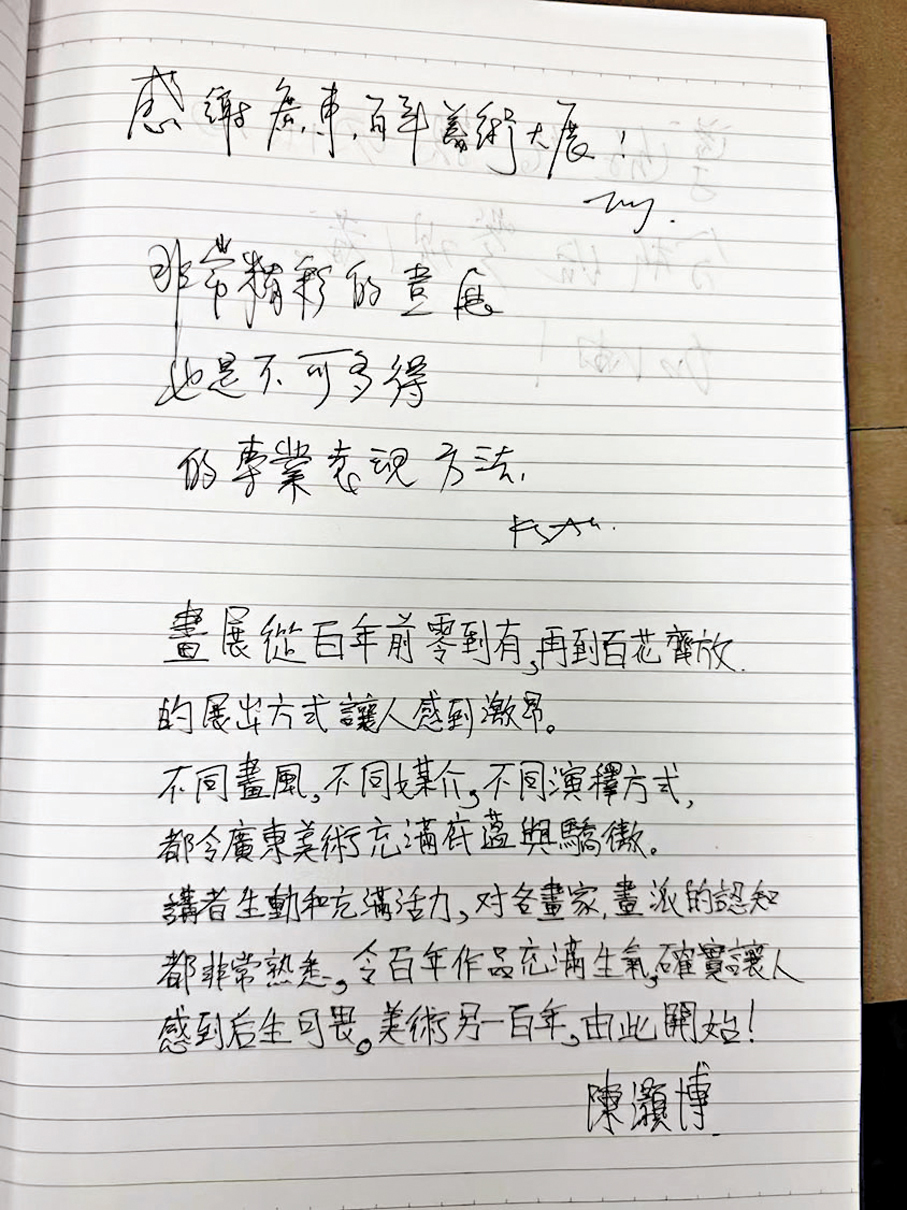 感謝廣東百年美術大展！
非常精彩的畫展
也是不可多得
的專業表現方法.
畫展從百年前零到有，再到百花齊放
的展出方式讓人感到激昂。
不同畫風，不同媒介，不同演釋方式，
都令廣東美術充滿底蘊與驕傲。
講者生動和充滿活力，对各畫家，畫派的認知
都非常熟悉，令百年作品充滿生氣，確實讓人
感到后生可畏。美術另一百年，由此開始！
陳灝博